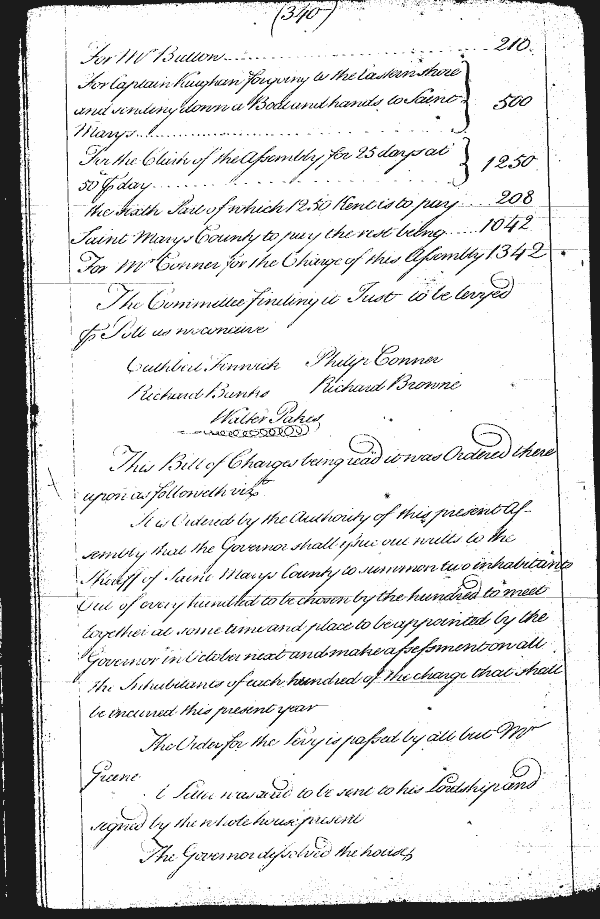 (340)
For Mr Bullen 210.
For Captain Vaughan for going to the Eastern shore
and sending down a Boat and hands to Saint 500
Marys
For the Clerk of the Assembly for 25 days at 1250
50 ⅌ day
the sixth Part of which 1250 Kent is to pay 208
Saint Marys County to pay the rest being 1042
For Mr Conner for the Charge of this Assembly 1342
The Committee finding it Just to be levyed
⅌ Poll as we conceive
Cuthbert Fenwick Philip Conner
Richard Banks Richard Browne
Walter Pakes
This Bill of Charges being read it was Ordered there
upon as followeth vizt
It is Ordered by the Authority of this present As-
sembly that the Governor shall issue out writts to the
Sheriff of Saint Marys County to summon two inhabitants
Out of every hundred to be chosen by the hundred to meet
together at some time and place to be appointed by the
Governor in October next and make assessment on all
the Inhabitants of each hundred of the charge that shall
be incurred this present year
The Order for the Levy is passed by all but Mr
Greene
A Letter was read to be sent to his Lordship and
signed by the whole house present
The Governor dissolved the house